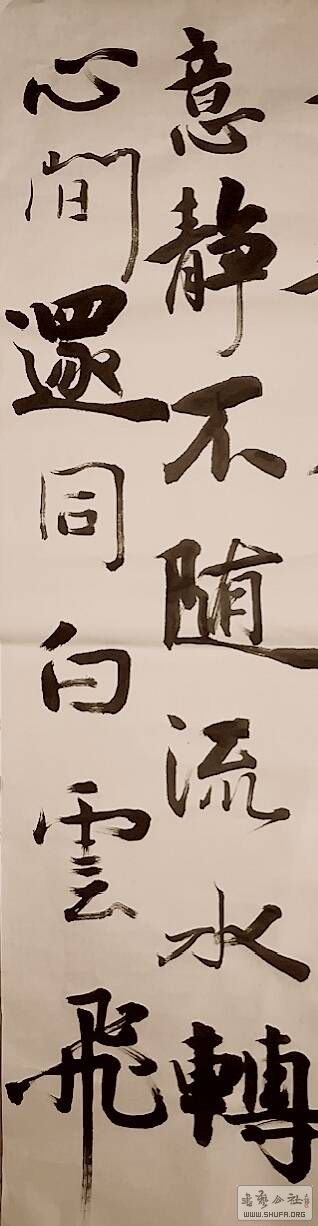 意静不随流水轉
心間還同白雲飛
書藝公社
WWW.SHUFA.ORG